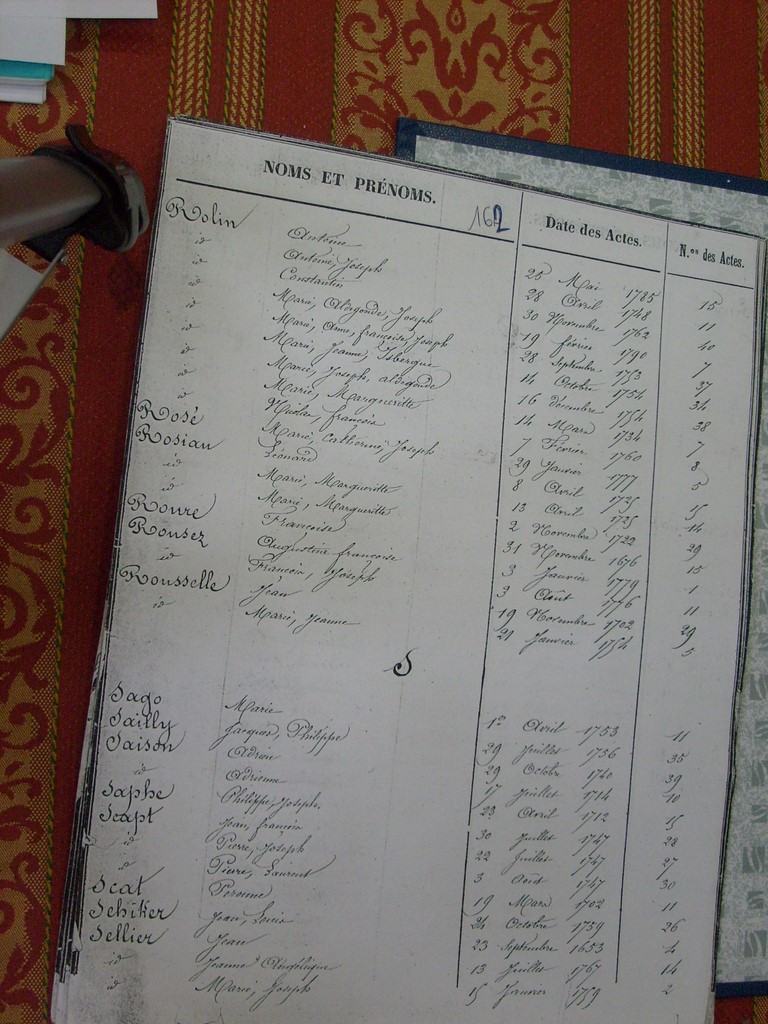 NOMS ET PRÉNOMS. 162 Date des Actes. N.os des Actes.
Rolin Antoine 25 Mai 1785 15
id Antoine, Joseph 28 Avril 1748 11
id Constantin 30 Novembre 1762 40
id Marie, Aldegonde, Joseph 19 février 1790 7
id Marie, Anne, françoise, Joseph 28 Septembre 1753 37
id Marie, Jeanne, Isbergue 14 Octobre 1754 34
id Marie, Joseph, aldegonde 16 décembre 1754 38
id Marie, Marguerite 14 Mars 1734 7
id Nicolas, françois 7 Février 1760 8
Rosé Marie, Catherine, Joseph 29 Janvier 1777 5
Rosiau Léonard 8 Avril 1725 15
id Marie, Marguerite 13 Avril 1725 14
id Marie, Marguerite 2 Novembre 1722 29
Rouré Françoise 31 Novembre 1676 15
Rousez Augustine françoise 3 Janvier 1779 1
id François, Joseph 3 Août 1776 11
Rousselle Jean 19 Novembre 1702 29
id Marie, Jeanne 21 Janvier 1754 5
S
Sago Marie 1er Avril 1753 11
Sailly Jacques, Philippe 29 Juillet 1736 35
Saison Adrien 29 Octobre 1740 39
id Adrienne 17 Juillet 1714 10
Saphe Philippe, Joseph. 23 Avril 1712 15
Scapt Jean, françois 30 Juillet 1747 28
id Pierre, Joseph 22 Juillet 1747 27
id Pierre, Laurent 3 Août 1747 30
Scat Peronne 19 Mars 1702 11
Schiker Jean, Louis 24 Octobre 1759 26
Sellier Jean 23 Septembre 1653 4
id Jeanne Angélique 13 Juillet 1767 14
id Marie, Joseph 15 Janvier 1759 2